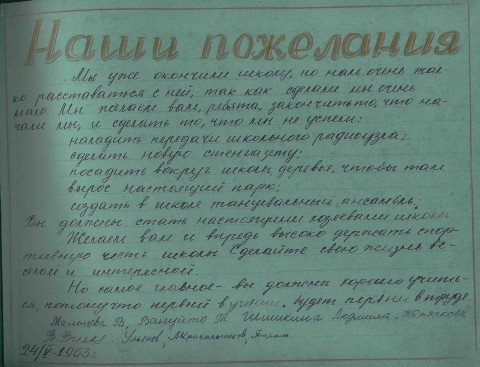 Наши пожелания
Мы уже окончили школу, но нам очень жал-
ко расставаться с ней, так как сделали мы очень
мало. Мы желаем вам, ребята, закончить то, что на-
чали мы, и сделать то, что мы не успели:
наладить передачи школьного радиоузла;
сделать новую стенгазету;
посадить вокруг школы деревья, чтобы там
вырос настоящий парк;
создать в школе танцевальный ансамбль.
Вы должны стать настоящими хозяевами школы.
Желаем вам и впредь высоко держать спор-
тивную честь школы. Сделайте свою жизнь ве-
селой и интересной.
Но самое главное - вы должны хорошо учить-
ся, потому что первый в учении, будет первым в труде.
В. Т. Шишкина Людмила,
В.
24/V-1963 г.